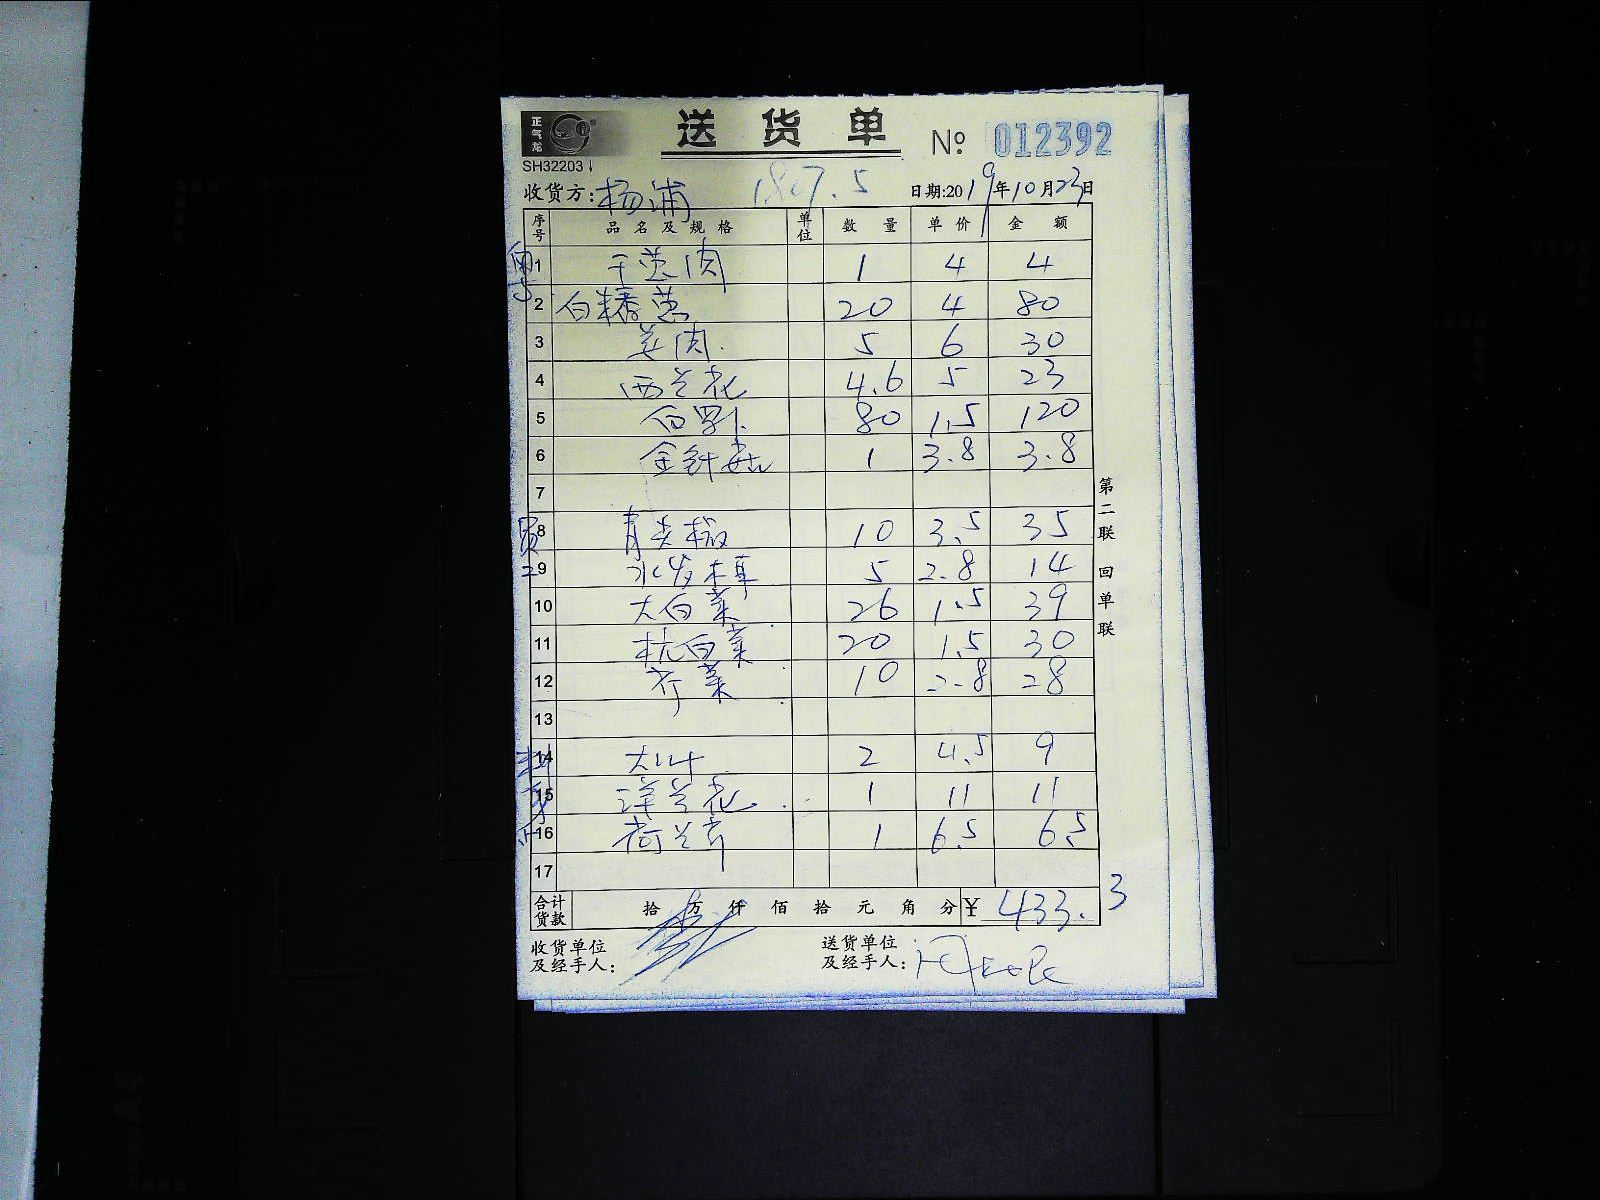 正气龙
送货单 № 012392
SH32203
收货方: 杨浦 1807.5 日期:2019年10月23日
序号 品名及规格 单位 数量 单价 金额
1 干葱肉 1 4 4
2 白糯葱 20 4 80
3 姜肉 5 6 30
4 西兰花 4.6 5 23
5 白萝卜 80 1.5 120
6 金针菇 1 3.8 3.8
7
8 青尖椒 10 3.5 35
9 水发木耳 5 2.8 14
10 大白菜 26 1.5 39
11 杭白菜 20 1.5 30
12 芹菜 10 2.8 28
13
14 大叶 2 4.5 9
15 洋兰花 1 11 11
16 荷兰芹 1 6.5 6.5
17
合计货款 拾 万 仟 佰 拾 元 角 分 ¥ 433.3
收货单位及经手人:
送货单位及经手人:
第二联 回单联